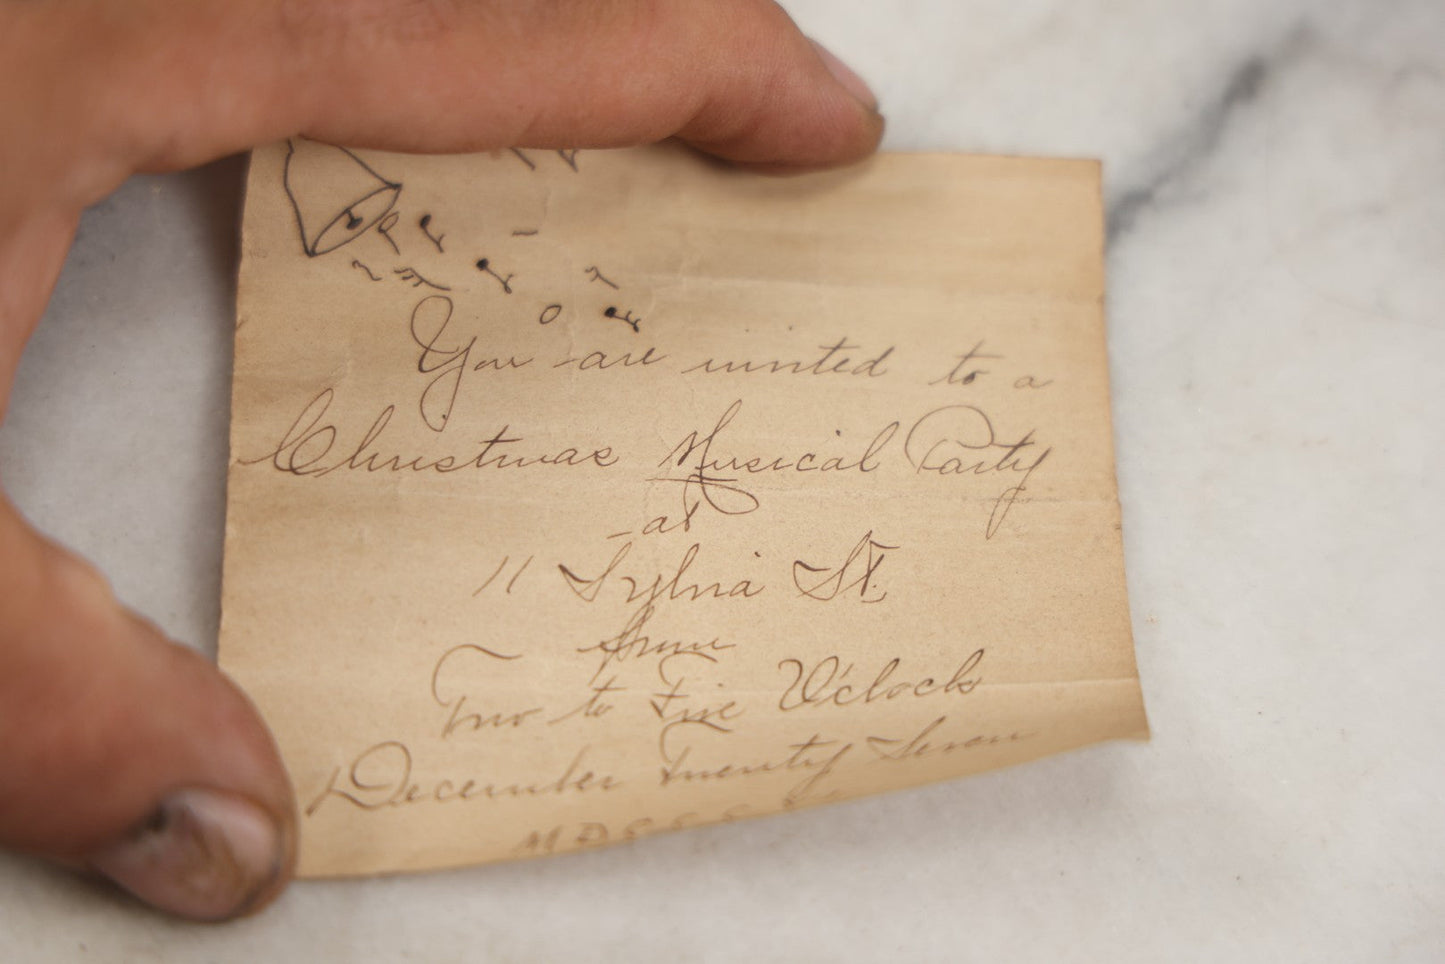 You are invited to a
Christmas Musical Party
at
11 Sylvia St.
from
Two to Five O'clock
December Twenty Seven